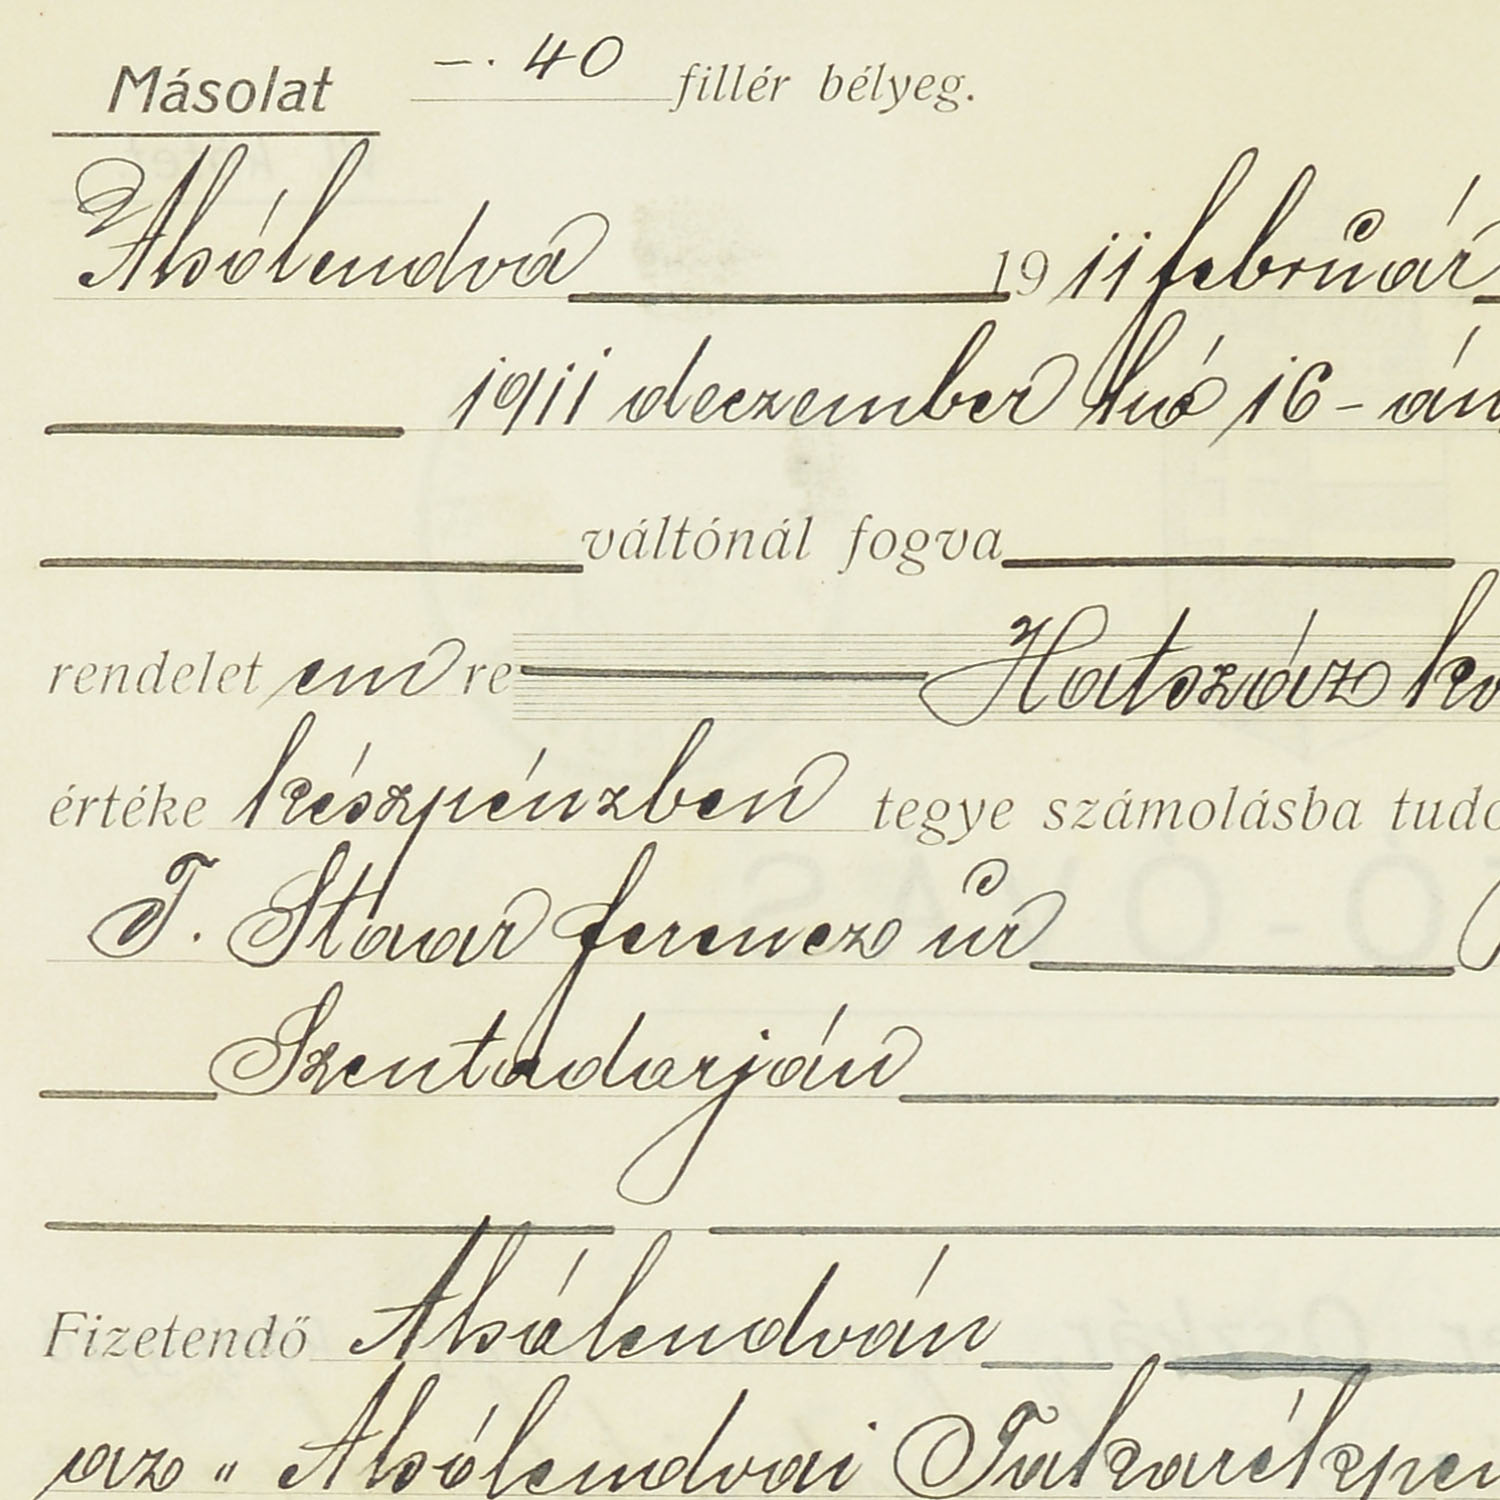 Másolat —. 40 fillér bélyeg.
Alsólendva 1911 február
1911 deczember hó 16-án
váltónál fogva
rendeletemre Hatszáz ko
értéke készpénzben tegye számolásba tudo
T. Staar Ferencz úr
Szentadorján
Fizetendő Alsólendván
az „ Alsólendvai Takarékpén